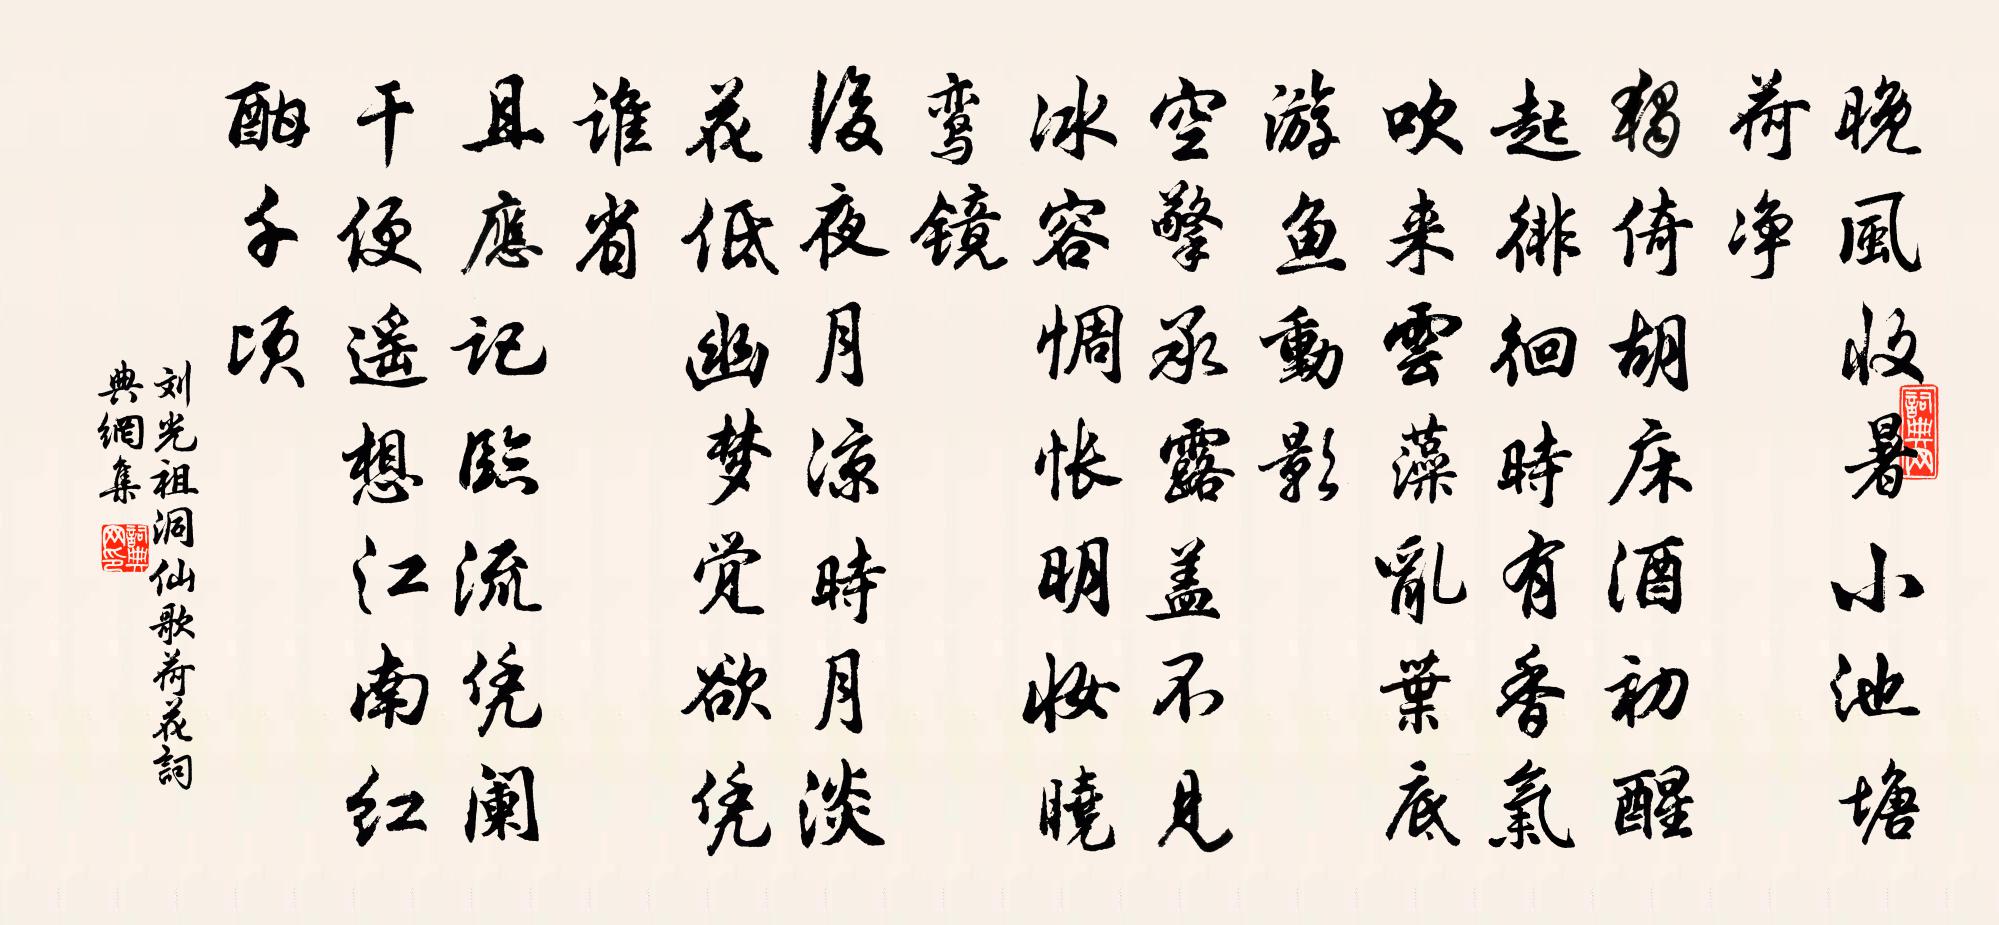 晚風收暑小池塘
荷净
獨倚胡床酒初醒
起徘徊時有香氣
吹来雲藻亂葉底
游鱼動影
空擎承露盖不见
冰容惆怅明妆曉
鸾镜
後夜月凉時月淡
花低幽梦觉欲凭
谁省
且應记臨流凭阑
干便遥想江南红
酣千顷
刘光祖洞仙歌荷花詞
典網集